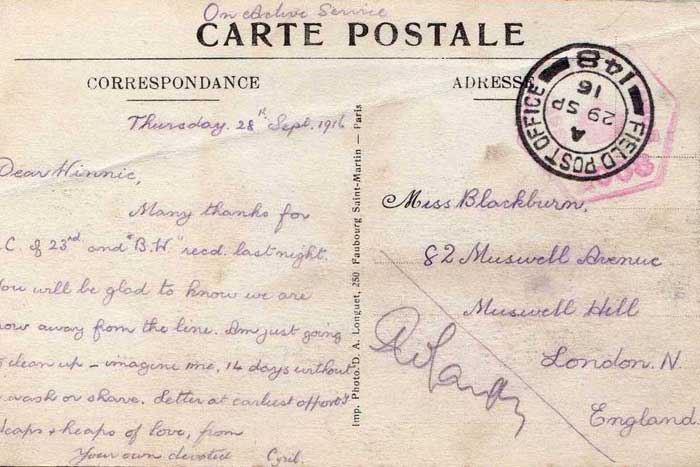 On Active Service
CARTE POSTALE
CORRESPONDANCE
ADRESSE
Thursday. 28th Sept. 1916
Dear Winnie,
Many thanks for
.C. of 23rd and "B.W" recd. last night.
You will be glad to know we are
now away from the line. Am just going
to clean up – imagine me, 14 days without
a wash or shave. Letter at earliest opport'y
Heaps + heaps of love, from
Your own devoted Cyril.
Imp. Photo. D. A. Longuet, 250 Faubourg Saint-Martin — Paris
FIELD POST OFFICE
148
A
29 SP
16
Miss Blackburn,
82 Muswell Avenue
Muswell Hill
London. N.
England.